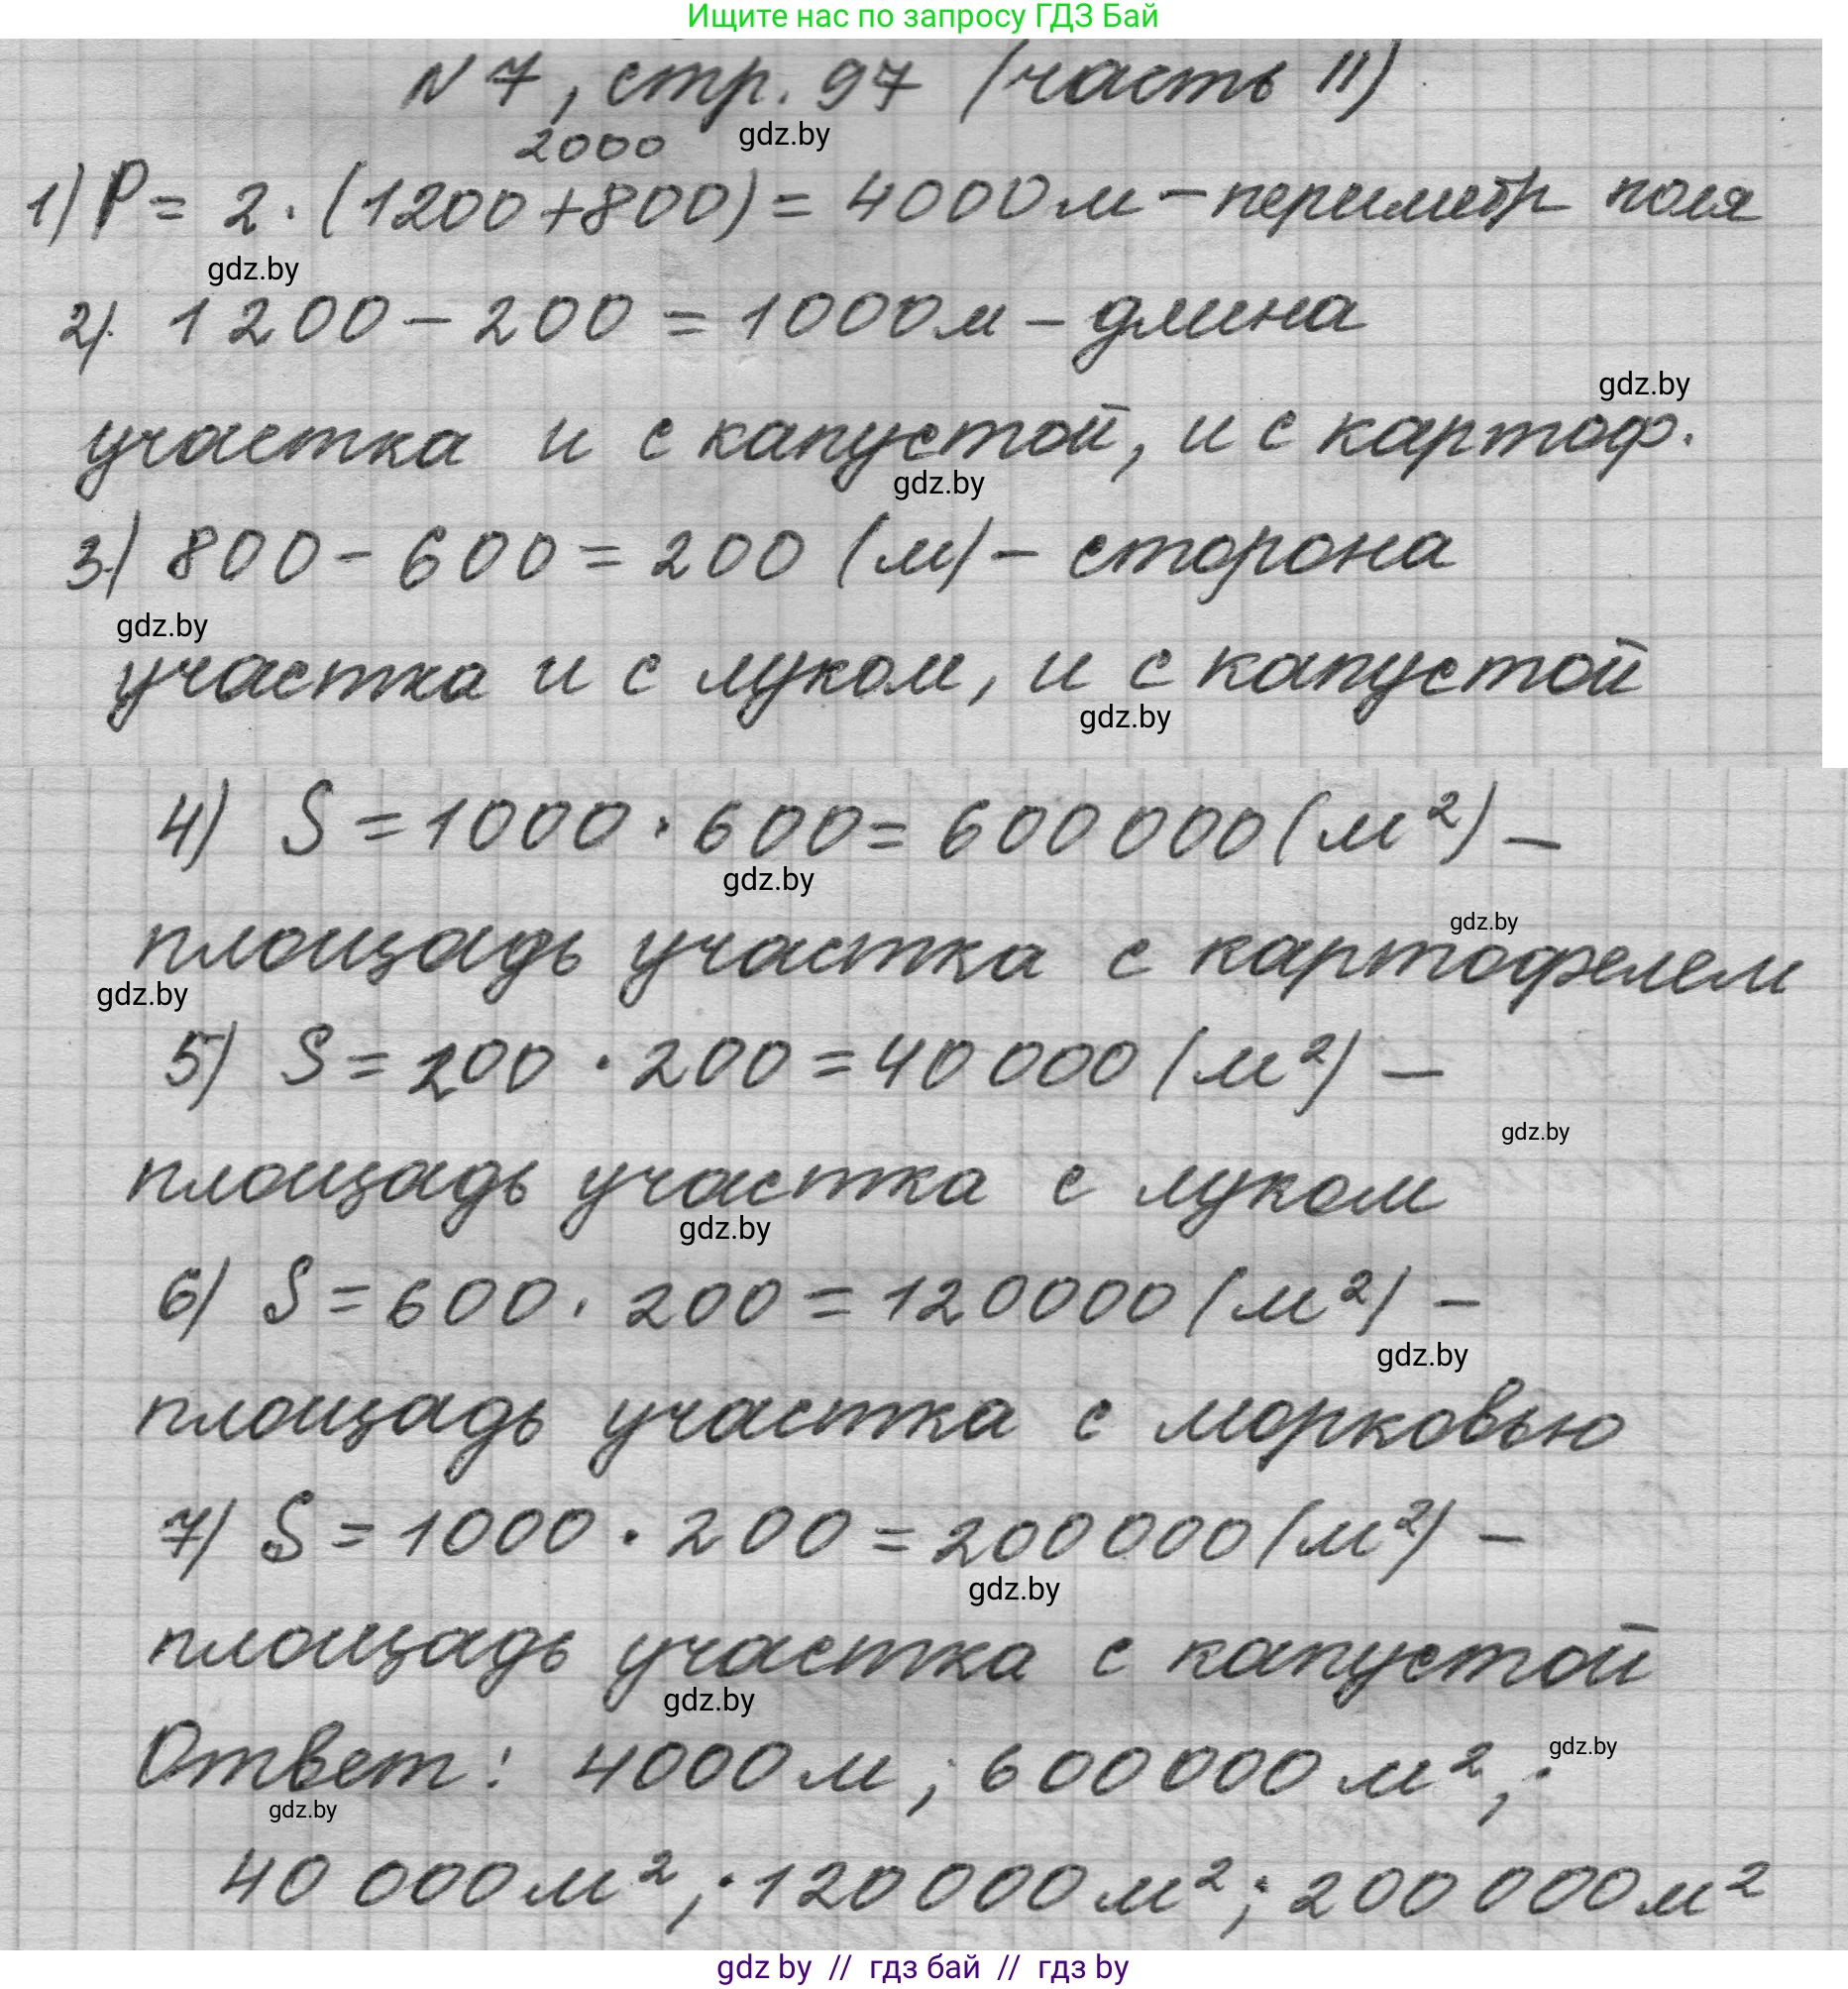 Ищите нас по запросу ГДЗ Бай
N 7, стр. 97 (часть II)
2000
gdz.by
1) P = 2 · (1200+800) = 4000 м – периметр поля
gdz.by
2). 1200 – 200 = 1000 м – длина
gdz.by
участка и с капустой, и с картоф.
gdz.by
3) 800 – 600 = 200 (м) – сторона
gdz.by
участка и с луком, и с капустой
gdz.by
4) S = 1000 · 600 = 600 000 (м²) –
gdz.by
gdz.by
площадь участка с картофелем
gdz.by
5) S = 200 · 200 = 40 000 (м²) –
gdz.by
площадь участка с луком
gdz.by
6) S = 600 · 200 = 120000 (м²) –
gdz.by
площадь участка с морковью
7) S = 1000 · 200 = 200 000 (м²) –
gdz.by
площадь участка с капустой
gdz.by
Ответ: 4000 м; 600000 м²;
gdz.by
gdz.by
40 000 м²; 120000 м²; 200 000 м²
gdz by // гдз бай // гдз by